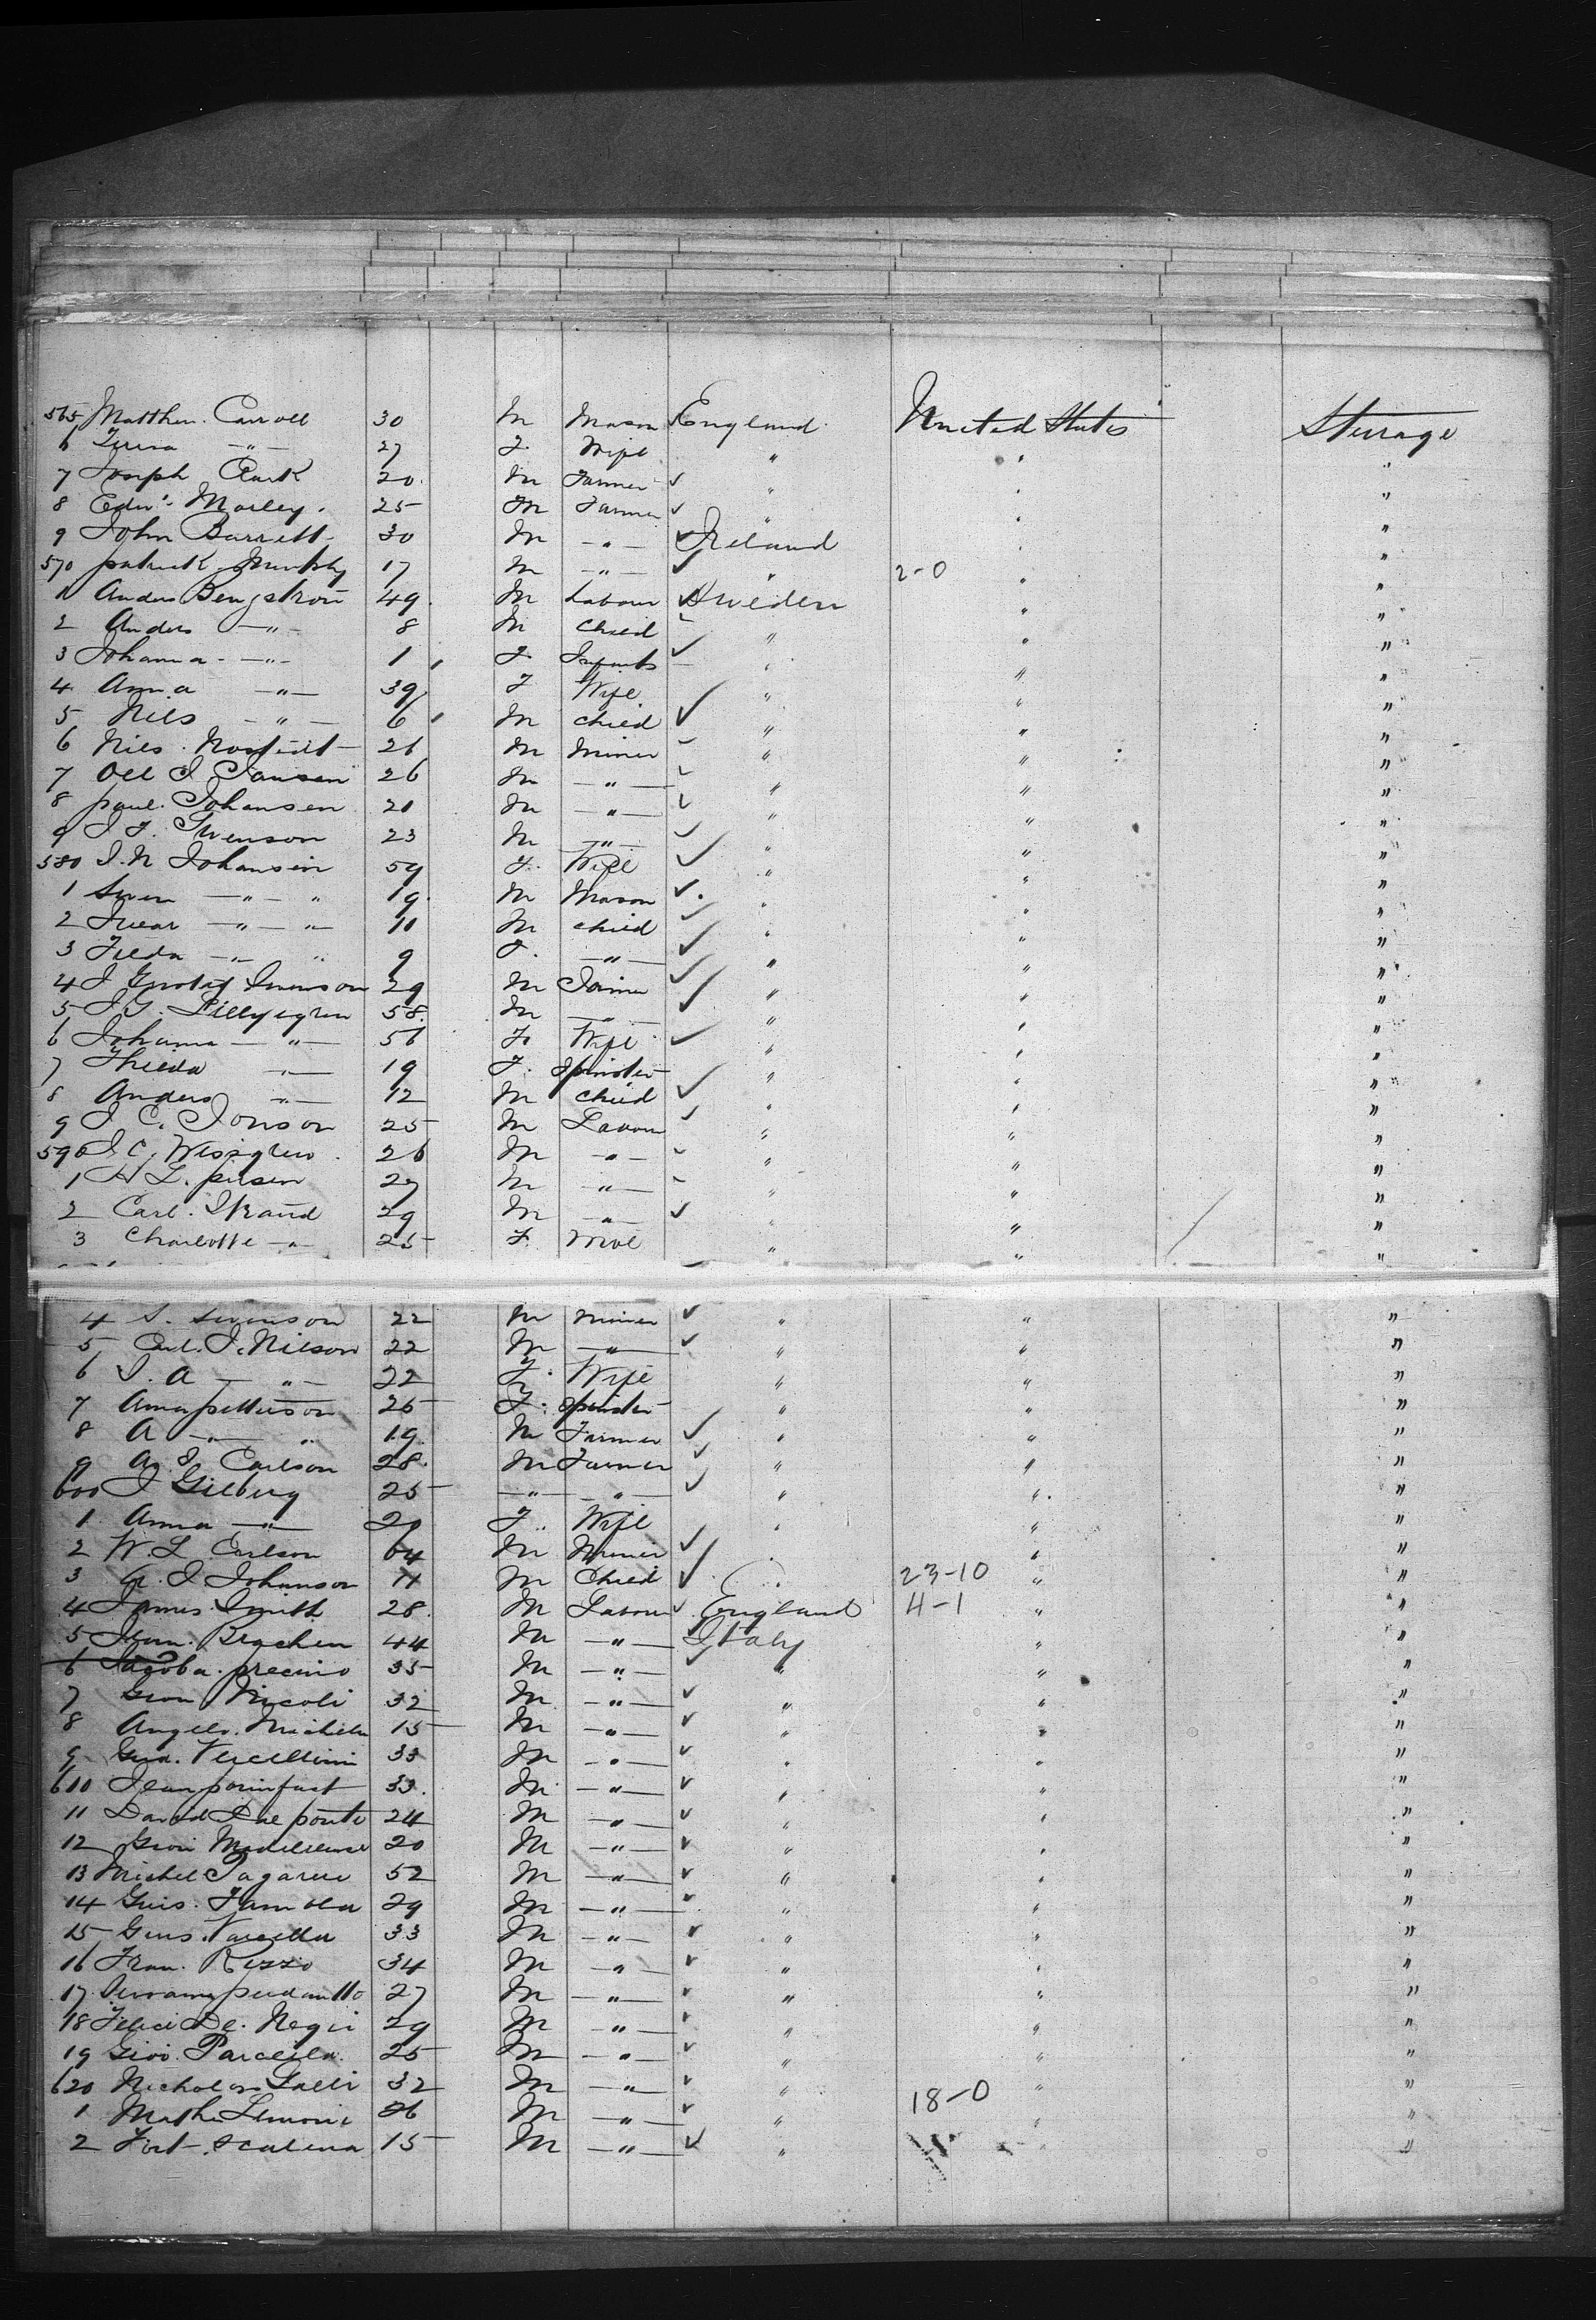 565 Matthew Carroll 30 M Mason England United States Steerage
6 Teresa —"— 27 F. Wife " " "
7 Joseph Clark 20 M Farmer ✓ " " "
8 Edwd. Morley. 25 M Farmer ✓ " " "
9 John Barrett 30 M —"— ✓ Ireland " "
570 patrick Murphy 17 M —"— ✓ " 2-0 " "
1 Anders Bengstron 49 M Labour ✓ Sweden " "
2 Anders —"— 8 M Child ✓ " " "
3 Johanna —"— 1 F Infants " " "
4 Anna —"— 39 F Wife " " "
5 Nils —"— 6 M Child ✓ " " "
6 Nils 26 M Miner ✓ " " "
7 Oll J Jansen 26 M —"— ✓ " " "
8 paul. Johansen 20 M —"— ✓ " " "
9 J F. Swenson 23 M —"— ✓ " " "
580 J. N Johansen 59 F. Wife ✓ " " "
1 Swen —"— " 19 M Mason ✓ " " "
2 Iwar —"— " 11 M Child ✓ " " "
3 —"— " 9 F. —"— ✓ " " "
4 J Gustaf Swenson 29 M ✓ " " "
5 J G. 58. M —"— ✓ " " "
6 Johanna —"— 56 F Wife ✓ " " "
7 —"— 19 F. Spinster " " "
8 Anders —"— 12 M Child ✓ " " "
9 J C. Jonson 25 M Labour ✓ " " "
590 J C. 26 M —"— ✓ " " "
1 H L. 27 M —"— ✓ " " "
2 Carl. Strand 29 M —"— ✓ " " "
3 Charlotte —"— 25 F. Wife " " "
4 S. Swenson 22 M Miner ✓ " " "
5 Carl. J. Nilson 22 M —"— ✓ " " "
6 J. A —"— 22 F. Wife " " "
7 Anna petterson 25 F. Spinster " " "
8 A —"— " 19 M Farmer ✓ " " "
9 A. J Carlson 28. M Farmer ✓ " " "
600 J Gilberg 25 —"— —"— ✓ " " "
1 Anna —"— 20 F. Wife " " "
2 W. L Carlson 64 M Miner ✓ " " "
3 A. J Johanson 11 M Child ✓ " 23-10 " "
4 James Smith 28. M Labour ✓ England 4-1 " "
5 44 M —"— Italy " "
6 Jacoba. 35 M —"— ✓ " " "
7 Giov Nicoli 32 M —"— ✓ " " "
8 Angelo. 15 M —"— ✓ " " "
9 Vercellini 33 M —"— ✓ " " "
610 33. M —"— ✓ " " "
11 David Dal ponte 24 M —"— ✓ " " "
12 Giovi 20 M —"— ✓ " " "
13 Michel 52 M —"— ✓ " " "
14 Guis. 29 M —"— ✓ " " "
15 Guis. 33 M —"— ✓ " " "
16 Fran. Rizzo 34 M —"— ✓ " " "
17 27 M —"— ✓ " " "
18 Felici De. Negri 29 M —"— ✓ " " "
19 Giov. Parcella. 25 M —"— ✓ " " "
620 Nicholas Galli 32 M —"— ✓ " " "
1 Lemoni 26 M —"— ✓ " 18-0 " "
2 Fort. 15 M —"— ✓ " " "